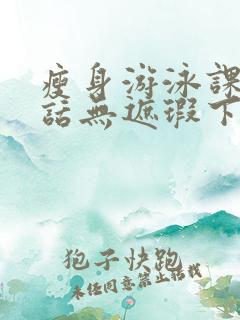 瘦身游泳課
話無遮瑕下
狍子快跑
未任同意禁止搭載